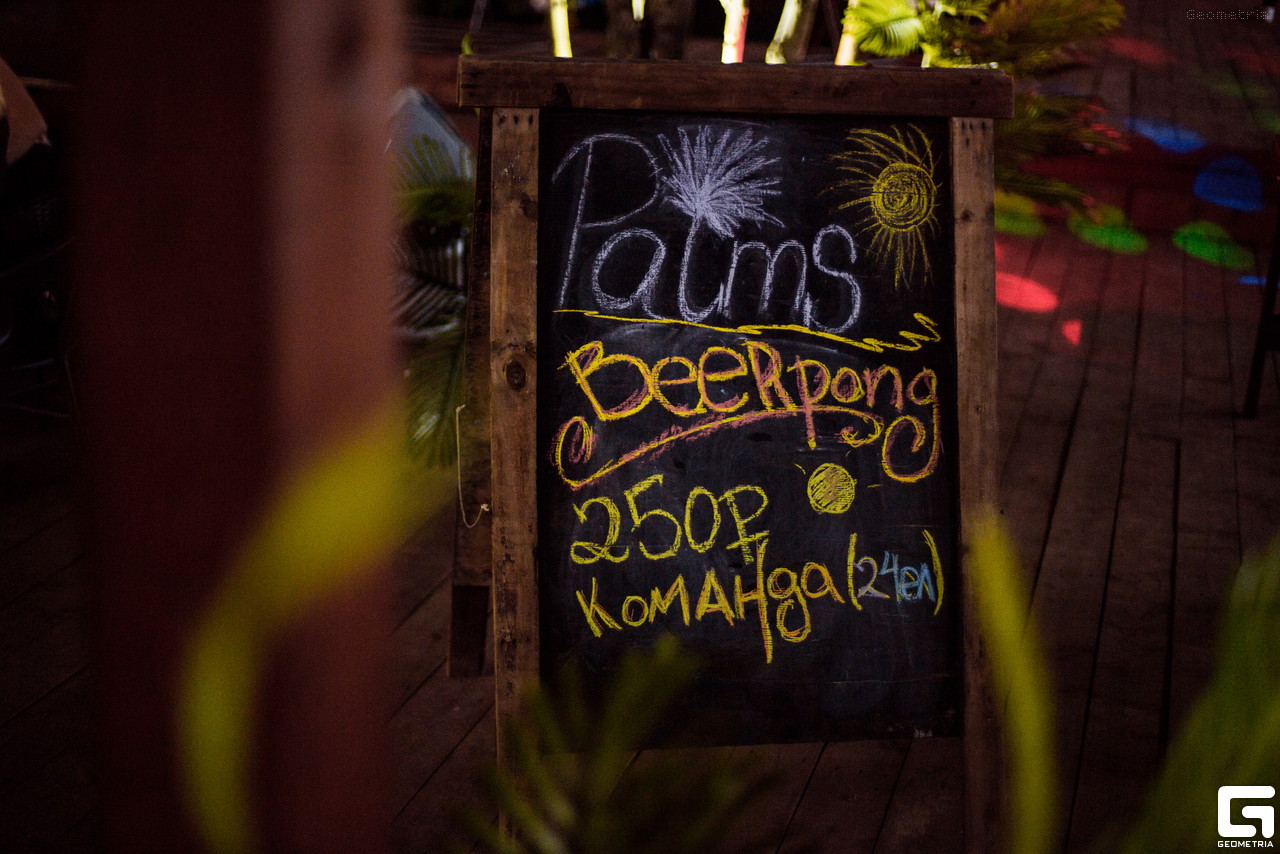 Geometria
Palms
BeeRpong
250₽
команда (2 чел)
GEOMETRIA